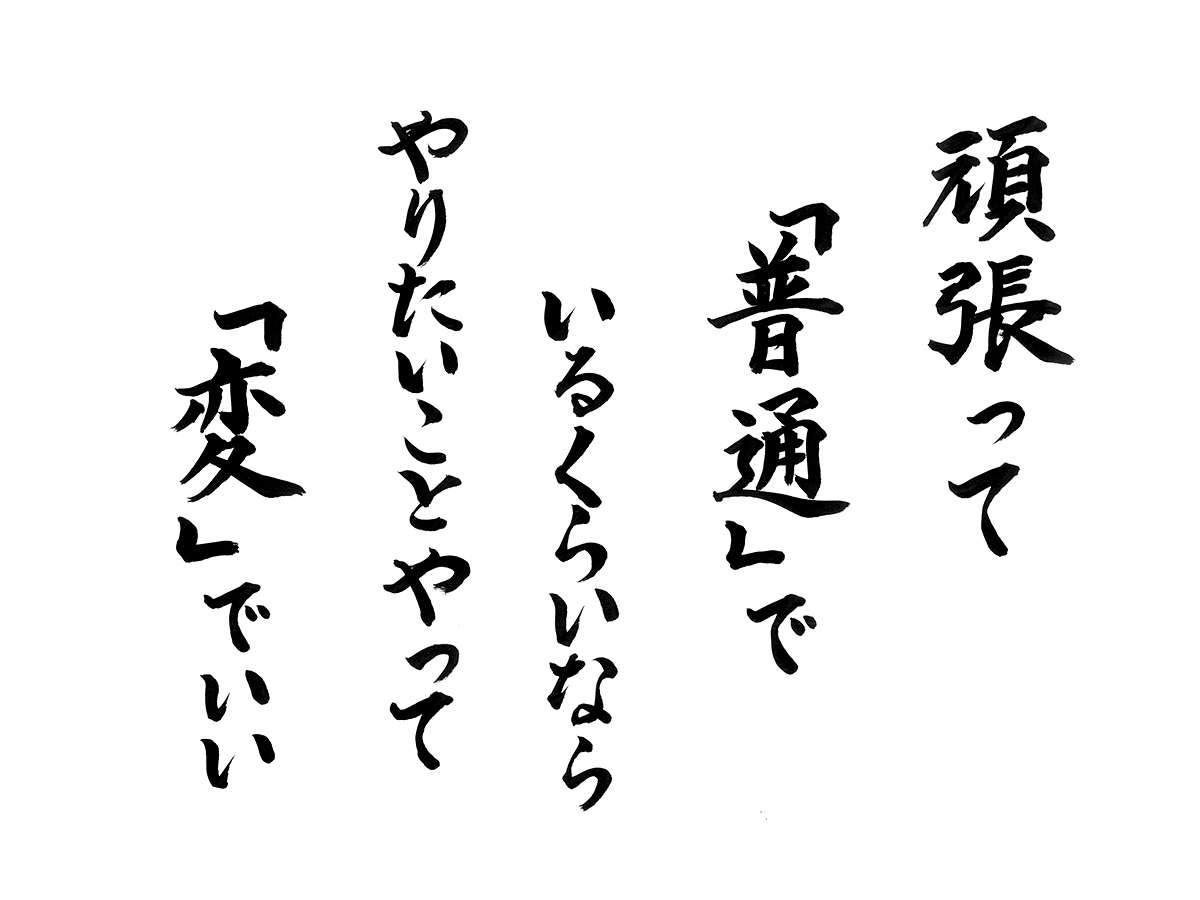 頑張って
「普通」で
いるくらいなら
やりたいことやって
「変」でいい